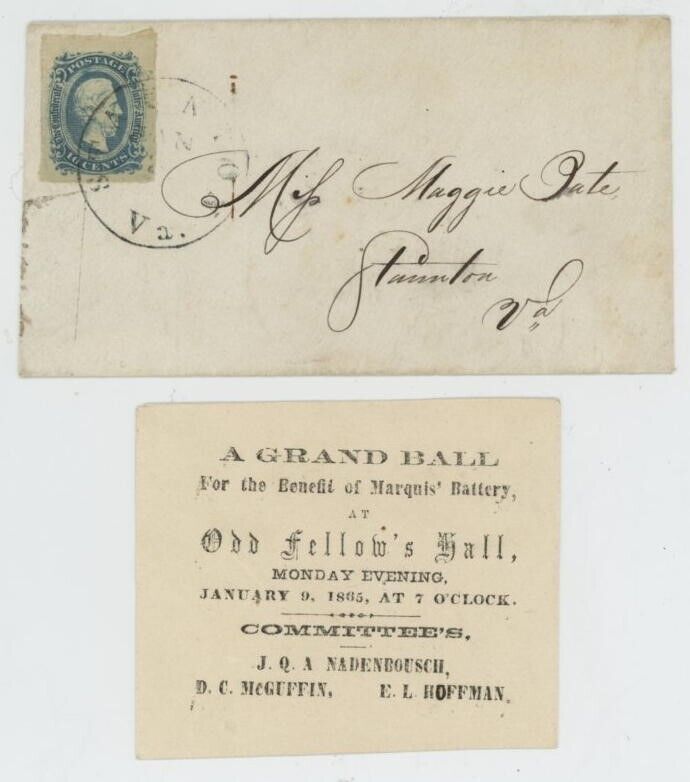 POSTAGE
The Confederate States of America
10 CENTS
Va.
Miss Maggie Pate,
Staunton
Va
A GRAND BALL
For the Benefit of Marquis' Battery,
AT
Odd Fellow's Hall,
MONDAY EVENING,
JANUARY 9, 1865, AT 7 O'CLOCK.
COMMITTEE'S,
J. Q. A NADENBOUSCH,
D. C. McGUFFIN, E. L. HOFFMAN.